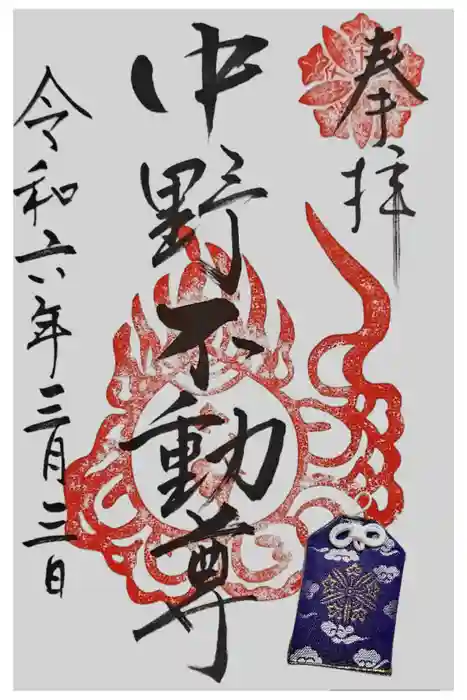 奉拝
中野不動尊
令和六年三月三日